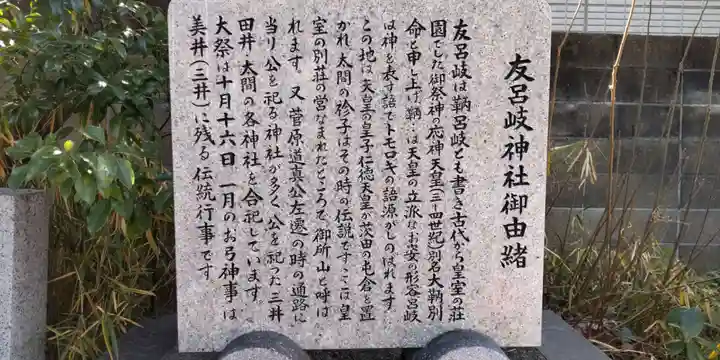 友呂岐神社御由緒
友呂岐は鞆呂岐とも書き古代から皇室の荘
園でした御祭神の応神天皇(三~四世紀)別名大鞆別
命と申し上げ、鞆…は天皇の立派なお姿の形容呂岐
は神を表す語でトモロキの語源がしのばれます。
この地は天皇の皇子仁徳天皇が茨田の屯倉を置
かれ、太間の衫子はその時の伝説です。ここは皇
室の別荘の営なまれたところで御所山と呼は
れます。又菅原道真公左遷の時の通路に
当り公を祀る神社が多く、公を祀った三井
田井、太間の各神社を合祀しています。
大祭は十月十六日、一月のお弓神事は
美井(三井)に残る伝統行事です